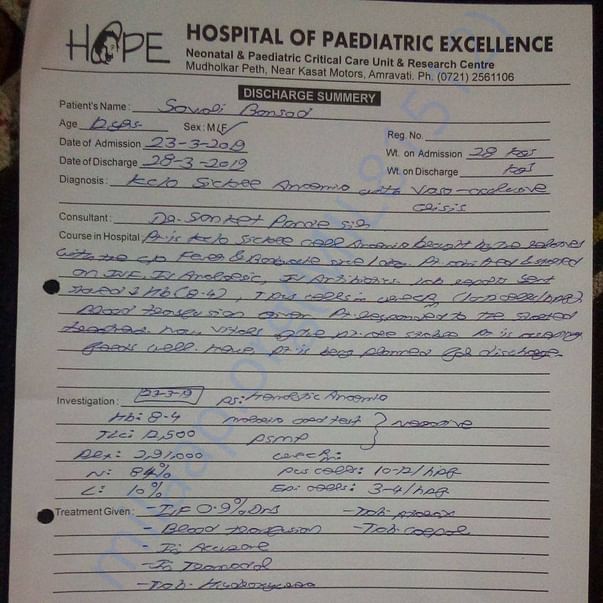 HOPE
HOSPITAL OF PAEDIATRIC EXCELLENCE
Neonatal & Paediatric Critical Care Unit & Research Centre
Mudholkar Peth, Near Kasat Motors, Amravati. Ph. (0721) 2561106
DISCHARGE SUMMERY
Patient's Name : Savali Bansod
Age Sex : M/F Reg. No.
Date of Admission 23-3-2019 Wt. on Admission 28 kgs
Date of Discharge 28-3-2019 Wt. on Discharge kgs
Diagnosis : K/c/o Sickle Anaemia with Vaso-occlusive
crisis
Consultant : Dr. Sanket Pande sir
Course in Hospital Pt is K/c/o Sickle cell Anaemia brought by the relatives
with the c/o Fever & since Pt admitted & started
on IVF, IV Analgesic, IV Antibiotics. Lab reports sent
Hb (8.4), Pus cells in urine, (10-12 cells/hpf).
Blood transfusion given. Pt responded to the started
treatment now vitals of the pt are stable. Pt is accepting
feeds well. Hence pt is being planned for discharge.
Investigation : 23-3-19 PS: Hemolytic Anaemia
Hb: 8.4 Malaria card test
TLC: 12,500 PSMP Negative
Plt: 2,91,000 Urine R/M:
N: 84% Pus cells: 10-12/hpf
L: 10% Epi cells: 3-4/hpf
Treatment Given : - IVF 0.9% DNS
- Blood transfusion
- IV Tramadol
- Tab. Hydroxyurea